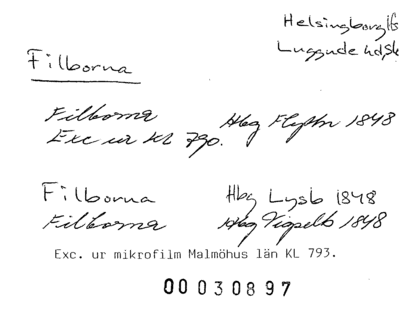 Helsingborg lfs
Luggude hd, Sk
Filborna
Filborna Hbg Flyttn 1848
Exc ur KL 790.
Filborna Hbg Lysb 1848
Filborna Hbg Vigselb 1848
Exc. ur mikrofilm Malmöhus län KL 793.
00030897